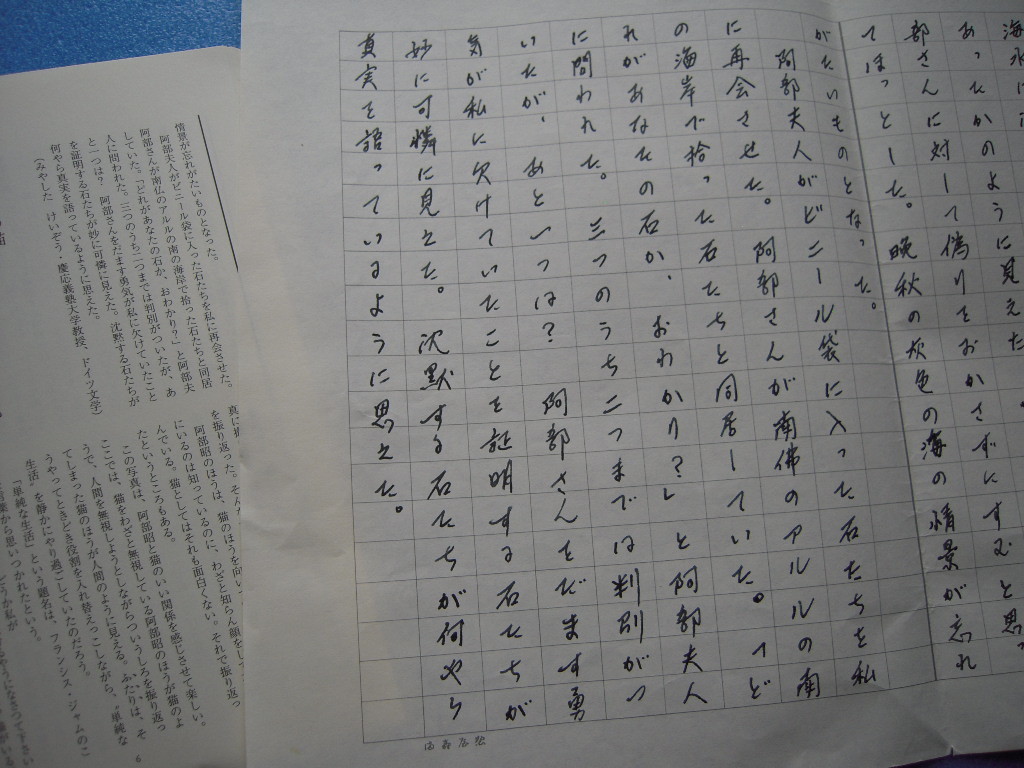 あったかのように見えた
部さんに対して偽りをおかさずにすむと思っ
てほっとした。晩秋の灰色の海の情景が忘れ
がたいものとなった。
阿部夫人がビニール袋に入った石たちを私
に再会させた。阿部さんが南佛のアルルの南
の海岸で拾った石たちと同居していた。「ど
れがあなたの石か、おわかり?」と阿部夫人
に問われた。三つのうち二つまでは判別がつ
いたが、あと一つは? 阿部さんをだます勇
気が私に欠けていたことを証明する石たちが
妙に可憐に見えた。沈黙する石たちが何やら
真実を語っているように思えた。
情景が忘れがたいものとなった。
阿部夫人がビニール袋に入った石たちを私に再会させた。
阿部さんが南仏のアルルの南の海岸で拾った石たちと同居
していた。「どれがあなたの石か、おわかり?」と阿部夫
人に問われた。三つのうち二つまでは判別がついたが、あ
と一つは? 阿部さんをだます勇気が私に欠けていたこと
を証明する石たちが妙に可憐に見えた。沈黙する石たちが
何やら真実を語っているように思えた。
(みやした けいぞう・慶応義塾大学教授、ドイツ文学)
を振り返った。
阿部昭のほうは、猫のほうを向いて
にいるのは知っているのに、わざと知らん顔を
んでいる。猫としてはそれも面白くない。それで振り返っ
たというところもある。
この写真は、阿部昭と猫のいい関係を感じさせて楽しい。
ここでは、猫をわざと無視している阿部昭のほうが猫のよ
うで、人間を無視しようとしながらついうしろを振り返っ
てしまった猫のほうが人間のように見える。ふたりは、そ
うやってときどき役割を入れ替えっこしながら、"単純な
生活"を静かにやり過ごしていたのだろう。
「単純な生活」という題名は、フランシス・ジャムのこ
言葉から思いつかれたという。
6